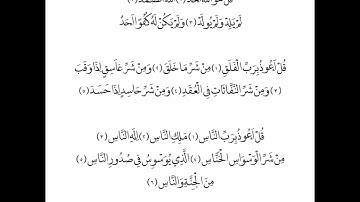 قُلْ هُوَ اللَّهُ أَحَدٌ (١) اللَّهُ الصَّمَدُ (٢)
لَمْ يَلِدْ وَلَمْ يُولَدْ (٣) وَلَمْ يَكُنْ لَهُ كُفُوًا أَحَدٌ
قُلْ أَعُوذُ بِرَبِّ الْفَلَقِ (١) مِنْ شَرِّ مَا خَلَقَ (٢) وَمِنْ شَرِّ غَاسِقٍ إِذَا وَقَبَ
(٣) وَمِنْ شَرِّ النَّفَّاثَاتِ فِي الْعُقَدِ (٤) وَمِنْ شَرِّ حَاسِدٍ إِذَا حَسَدَ (٥)
قُلْ أَعُوذُ بِرَبِّ النَّاسِ (١) مَلِكِ النَّاسِ (٢) إِلَهِ النَّاسِ (٣)
مِنْ شَرِّ الْوَسْوَاسِ الْخَنَّاسِ (٤) الَّذِي يُوَسْوِسُ فِي صُدُورِ النَّاسِ (٥)
مِنَ الْجِنَّةِ وَالنَّاسِ (٦)